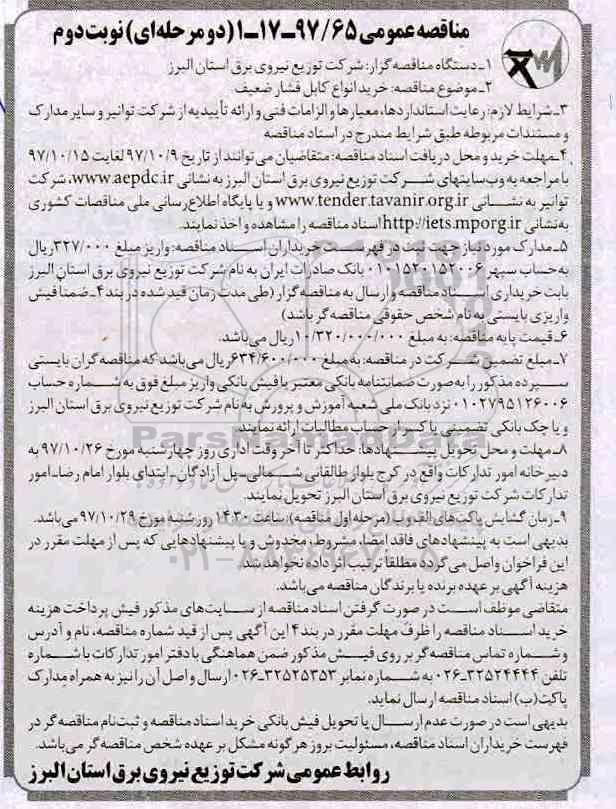 مناقصه عمومی ۹۷/۶۵-۱۷-۱ (دو مرحله‌ای) نوبت دوم
۱- دستگاه مناقصه گزار: شرکت توزیع نیروی برق استان البرز
۲- موضوع مناقصه: خرید انواع کابل فشار ضعیف
۳- شرایط لازم: رعایت استانداردها، معیارها و الزامات فنی و ارائه تأییدیه از شرکت توانیر و سایر مدارک
و مستندات مربوطه طبق شرایط مندرج در اسناد مناقصه
۴- مهلت خرید و محل دریافت اسناد مناقصه: متقاضیان می‌توانند از تاریخ ۹۷/۱۰/۹ لغایت ۹۷/۱۰/۱۵
با مراجعه به وب‌سایتهای شرکت توزیع نیروی برق استان البرز به نشانی www.aepdc.ir، شرکت
توانیر به نشانی www.tender.tavanir.org.ir و یا پایگاه اطلاع‌رسانی ملی مناقصات کشوری
به‌نشانی http://iets.mporg.ir اسناد مناقصه را مشاهده و اخذ نمایند.
۵- مدارک مورد نیاز جهت ثبت در فهرست خریداران اسناد مناقصه: واریز مبلغ ۳۲۷/۰۰۰ ریال
به‌حساب سپهر ۰۱۰۱۵۲۰۱۵۲۰۰۶ بانک صادرات ایران به نام شرکت توزیع نیروی برق استان البرز
بابت خریداری اسناد مناقصه و ارسال به مناقصه گزار (طی مدت زمان قید شده در بند ۴- ضمنا فیش
واریزی بایستی به نام شخص حقوقی مناقصه گر باشد)
۶- قیمت پایه مناقصه: به مبلغ ۱۰/۳۲۰/۰۰۰/۰۰۰ ریال می‌باشد.
۷- مبلغ تضمین شرکت در مناقصه: به مبلغ ۶۳۴/۶۰۰/۰۰۰ ریال می‌باشد که مناقصه گران بایستی
سپرده مذکور را به صورت ضمانتنامه بانکی معتبر یا فیش بانکی واریز مبلغ فوق به شماره حساب
۰۱۰۲۷۹۵۱۲۶۰۰۶ نزد بانک ملی شعبه آموزش و پرورش به نام شرکت توزیع نیروی برق استان البرز
و یا چک بانکی تضمینی یا کسر از حساب مطالبات ارائه نمایند.
۸- مهلت و محل تحویل پیشنهادها: حداکثر تا آخر وقت اداری روز چهارشنبه مورخ ۹۷/۱۰/۲۶ به
دبیرخانه امور تدارکات واقع در کرج بلوار طالقانی شمالی-پل آزادگان-ابتدای بلوار امام رضا-امور
تدارکات شرکت توزیع نیروی برق استان البرز تحویل نمایند.
۹- زمان گشایش پاکت‌های الف و ب (مرحله اول مناقصه): ساعت ۱۴:۳۰ روز شنبه مورخ ۹۷/۱۰/۲۹ می‌باشد.
بدیهی است به پیشنهادهای فاقد امضا، مشروط، مخدوش و یا پیشنهادهایی که پس از مهلت مقرر در
این فراخوان واصل می‌گردد مطلقا ترتیب اثر داده نخواهد شد
هزینه آگهی بر عهده برنده یا برندگان مناقصه می‌باشد.
متقاضی موظف است در صورت گرفتن اسناد مناقصه از سایت‌های مذکور فیش پرداخت هزینه
خرید اسناد مناقصه را ظرف مهلت مقرر در بند ۴ این آگهی پس از قید شماره مناقصه، نام و آدرس
و شماره تماس مناقصه گر بر روی فیش مذکور ضمن هماهنگی با دفتر امور تدارکات با شماره
تلفن ۳۲۵۲۴۴۴۴-۰۲۶ به شماره نمابر ۳۲۵۲۵۳۵۳-۰۲۶ ارسال و اصل آن را نیز به همراه مدارک
پاکت (ب) اسناد مناقصه ارسال نماید.
بدیهی است در صورت عدم ارسال یا تحویل فیش بانکی خرید اسناد مناقصه و ثبت‌نام مناقصه گر در
فهرست خریداران اسناد مناقصه، مسئولیت بروز هر گونه مشکل بر عهده شخص مناقصه گر می‌باشد.
روابط عمومی شرکت توزیع نیروی برق استان البرز
ParsNamadData